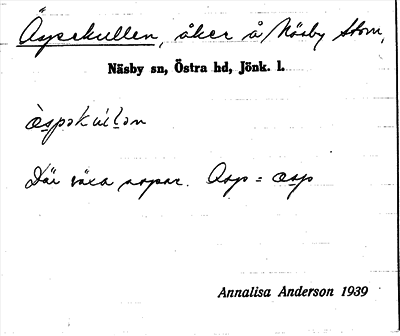 Äspekullen, åker å Näsby Stom,
Näsby sn, Östra hd, Jönk. l.
Där växa aspar. Asp = æsp
Annalisa Anderson 1939